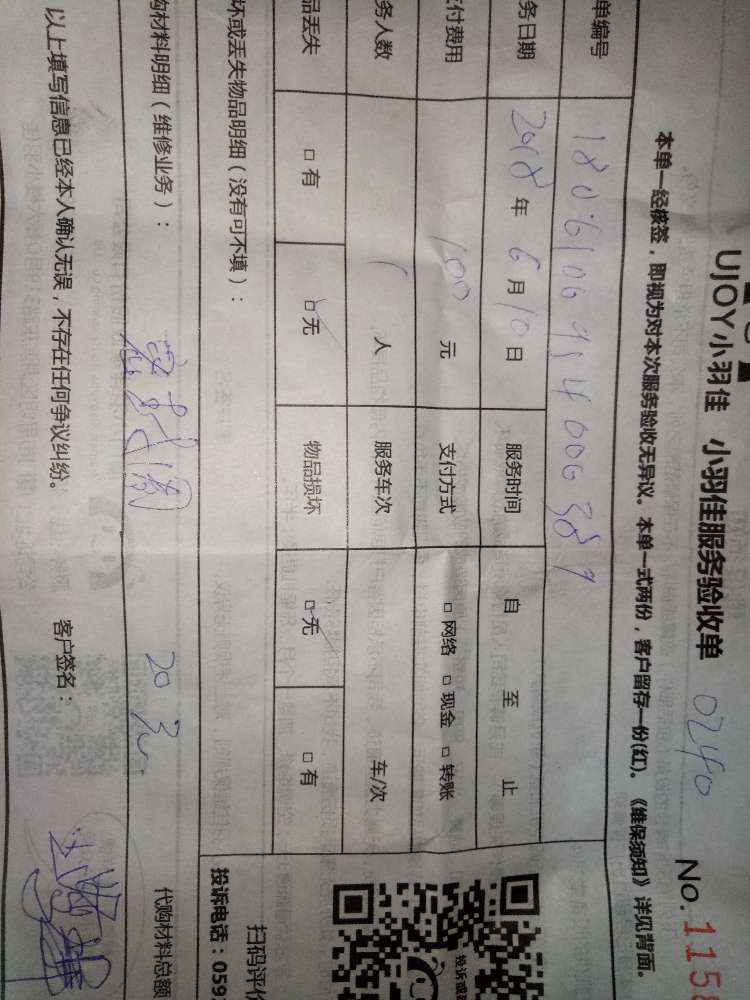 UJOY小羽佳 小羽佳服务验收单 0240 No. 115
本单一经核签，即视为对本次服务验收无异议。本单一式两份，客户留存一份(红)。《维保须知》详见背面。
单编号
务日期 2018年 6月 10日 服务时间 自 至 止
付费用 100 元 支付方式 □ 网络 □ 现金 □ 转账
务人数 1 人 服务车次 车/次
品丢失 □ 有 □ 无 物品损坏 □ 无 □ 有
坏或丢失物品明细（没有可不填）：
扫码评价
投诉电话：059
购材料明细（维修业务）： 20元 代购材料总额
以上填写信息已经本人确认无误，不存在任何争议纠纷。 客户签名：